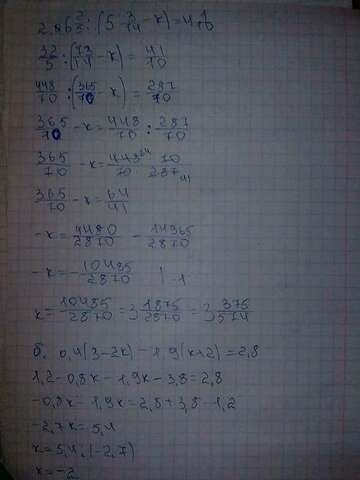 2. а 6 2/5 : (5 3/14 - x) = 4 1/10
32/5 : (73/14 - x) = 41/10
448/70 : (365/70 - x) = 287/70
365/70 - x = 448/70 : 287/70
365/70 - x = 448 64/70 70/287 41
365/70 - x = 64/41
-x = 4480/2870 - 14965/2870
-x = -10485/2870 | -1
x = 10485/2870 = 3 1875/2870 = 3 375/574
б. 0,4(3-2x) - 1,9(x+2) = 2,8
1,2 - 0,8x - 1,9x - 3,8 = 2,8
-0,8x - 1,9x = 2,8 + 3,8 - 1,2
-2,7x = 5,4
x = 5,4 : (-2,7)
x = -2